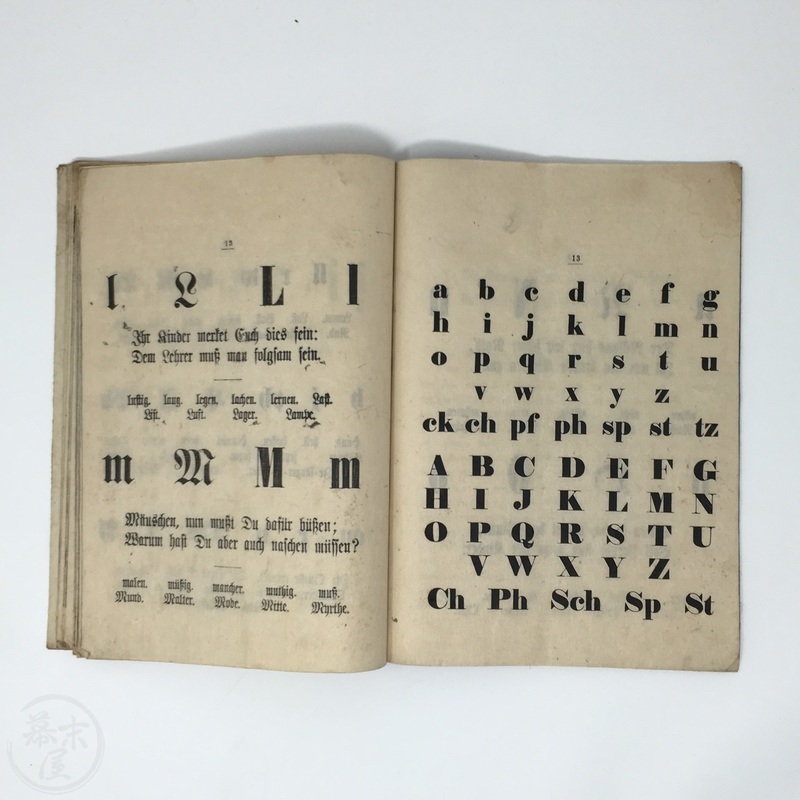 12
l L L l
Ihr Kinder merket Euch dies fein:
Dem Lehrer muß man folgsam sein.
luftig. lang. legen. lachen. lernen. Last.
List. Luft. Lager. Lampe.
m M M m
Mäuschen, nun mußt Du dafür büßen;
Warum hast Du aber auch naschen müssen?
malen. müßig. mancher. muthig. muß.
Mund. Malter. Mode. Mitte. Myrthe.
13
a b c d e f g
h i j k l m n
o p q r s t u
v w x y z
ck ch pf ph sp st tz
A B C D E F G
H I J K L M N
O P Q R S T U
V W X Y Z
Ch Ph Sch Sp St
幕末屋